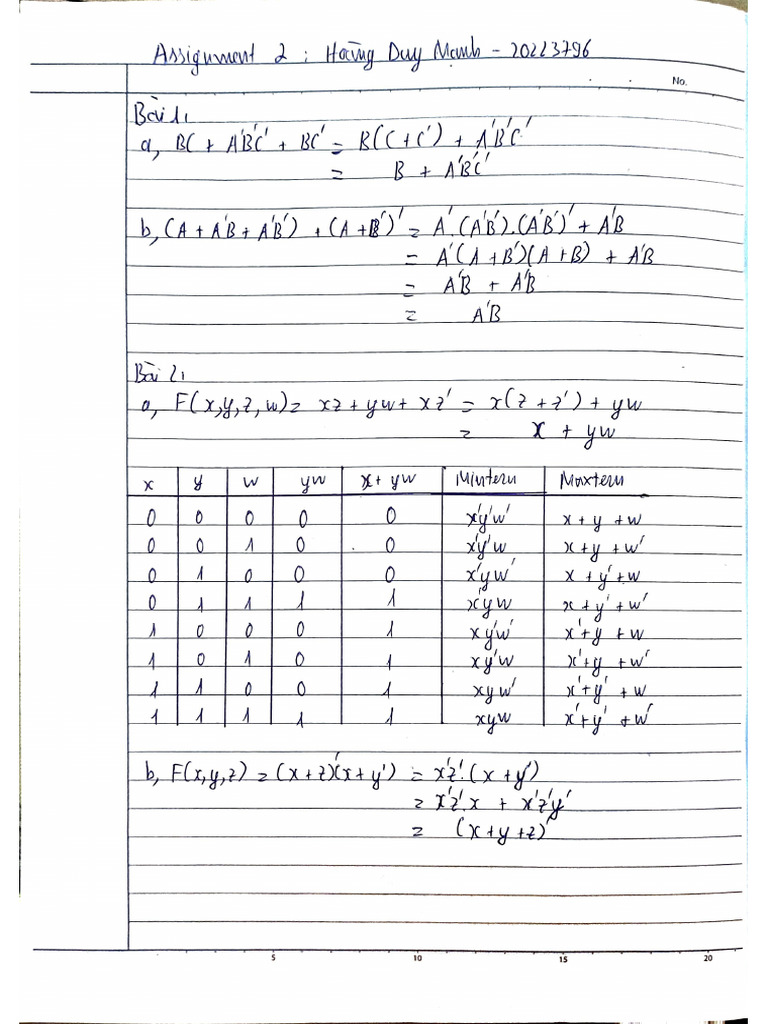 Assignment 2 : Hoàng Duy Mạnh - 20223796
No.
Bài 1:
a, BC + A'B'C' + BC' = B(C + C') + A'B'C'
= B + A'B'C'
b, (A + A'B + A'B') + (A + B')' = A'.(A'B').(A'B')' + A'B
= A'(A + B')(A + B) + A'B
= A'B + A'B
= A'B
Bài 2:
a, F(x,y,z,w) = xz + yw + xz' = x(z + z') + yw
= x + yw
x y w yw x + yw Minterm Maxterm
0 0 0 0 0 x'y'w' x + y + w
0 0 1 0 0 x'y'w x + y + w'
0 1 0 0 0 x'yw' x + y' + w
0 1 1 1 1 x'yw x + y' + w'
1 0 0 0 1 xy'w' x' + y + w
1 0 1 0 1 xy'w x' + y + w'
1 1 0 0 1 xyw' x' + y' + w
1 1 1 1 1 xyw x' + y' + w'
b, F(x,y,z) = (x + z)'(x + y') = x'z'.(x + y')
= x'z'.x + x'z'y'
= (x + y + z)'
5 10 15 20